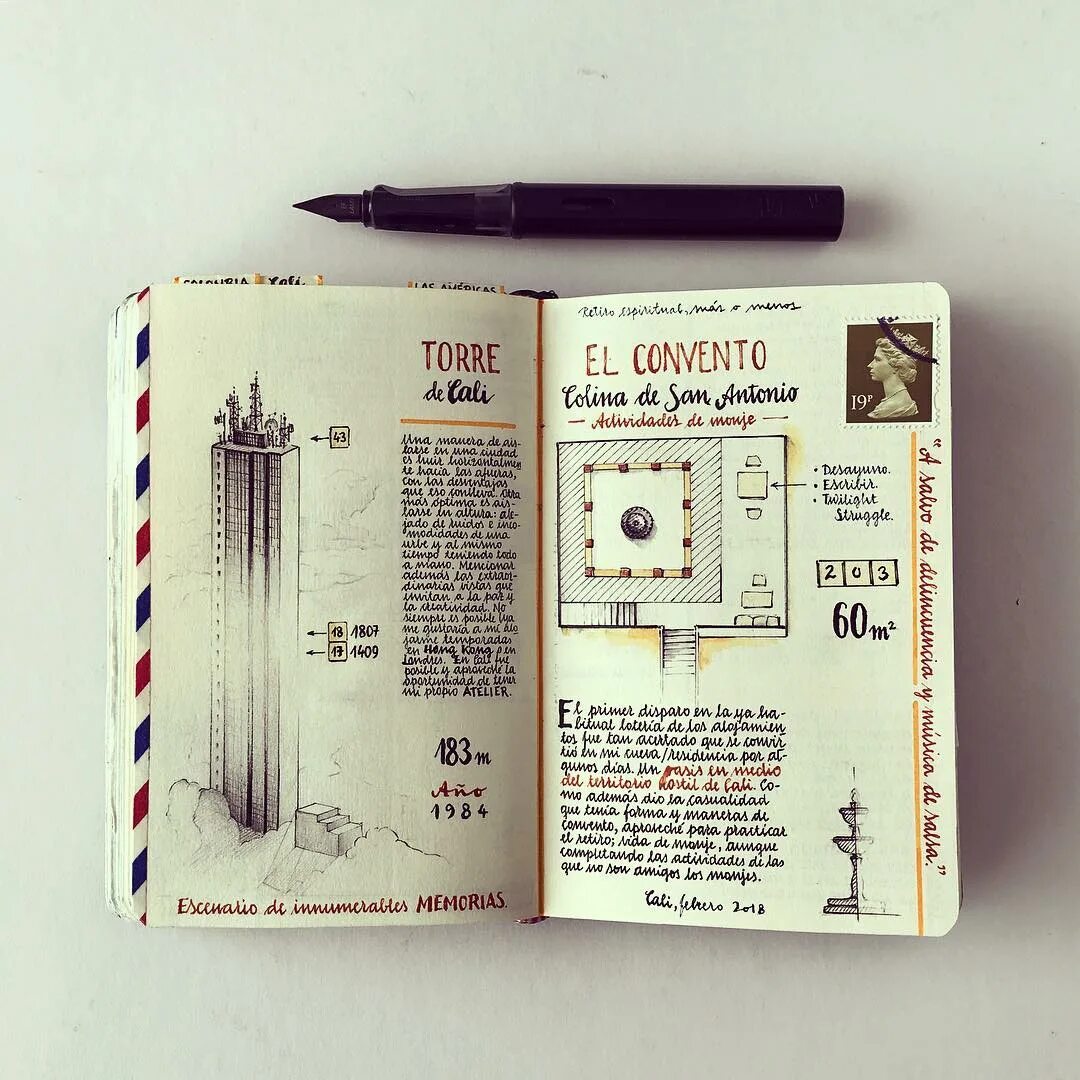 COLOMBIA
Cali
LAS AMÉRICAS
TORRE
de Cali
43
Una manera de ais-
larse en una ciudad
es huir horizontalmen
te hacia las afueras,
con las desventajas
que eso conlleva. Otra
más óptima es ais-
larse en altura: ale-
jado de ruidos e inco-
modidades de una
urbe y al mismo
tiempo teniendo todo
a mano. Mencionar
además las extraor-
dinarias vistas que
invitan a la paz y
la creatividad. No
siempre es posible (ya
me gustaría a mí alo
jarme temporadas
en Hong Kong o en
Londres. En Cali fue
posible y aproveché la
oportunidad de tener
mi propio ATELIER.
18 1807
17 1409
183 m
Año
1984
Escenario de innumerables MEMORIAS.
Retiro espiritual, más o menos
EL CONVENTO
Colina de San Antonio
Actividades de monje
19P
• Desayuno.
• Escribir.
• Twilight
Struggle.
203
60 m²
"A salvo de delincuencia y música de salsa."
El primer disparo en la ya ha-
bitual lotería de los alojamien
tos fue tan acertado que se convir
tió en mi cueva/residencia por al-
gunos días. Un oasis en medio
del territorio hostil de Cali. Co-
mo además dio la casualidad
que tenía forma y maneras de
convento, aproveché para practicar
el retiro; vida de monje, aunque
completando las actividades de las
que no son amigos los monjes.
Cali, febrero 2018